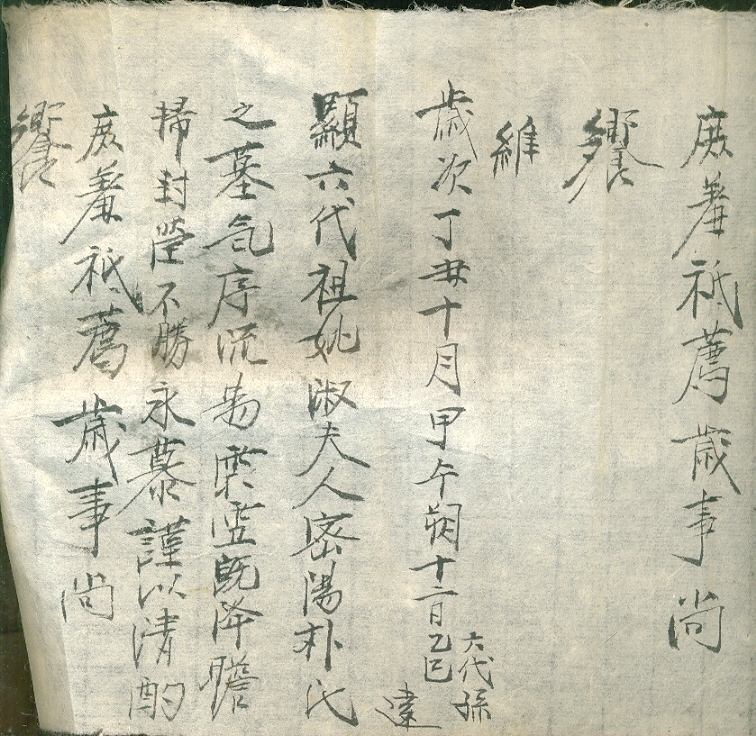 庶羞祗薦歲事尚
饗
維
歲次丁丑十月甲午朔十二日乙巳六代孫達
顯六代祖妣淑夫人密陽朴氏
之墓气序流易霜露既降瞻
掃封塋不勝永慕謹以清酌
庶羞祗薦歲事尚
饗